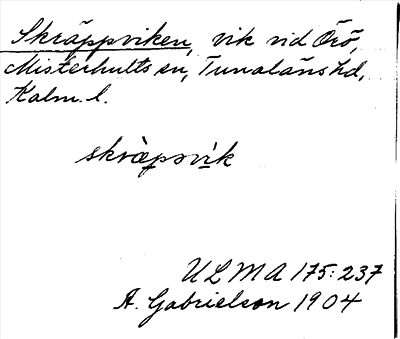 Skräppviken, vik vid Örö,
Misterhults sn, Tunaläns hd,
Kalm. l.
skràpəvìk
ULMA 175:237
A. Gabrielson 1904